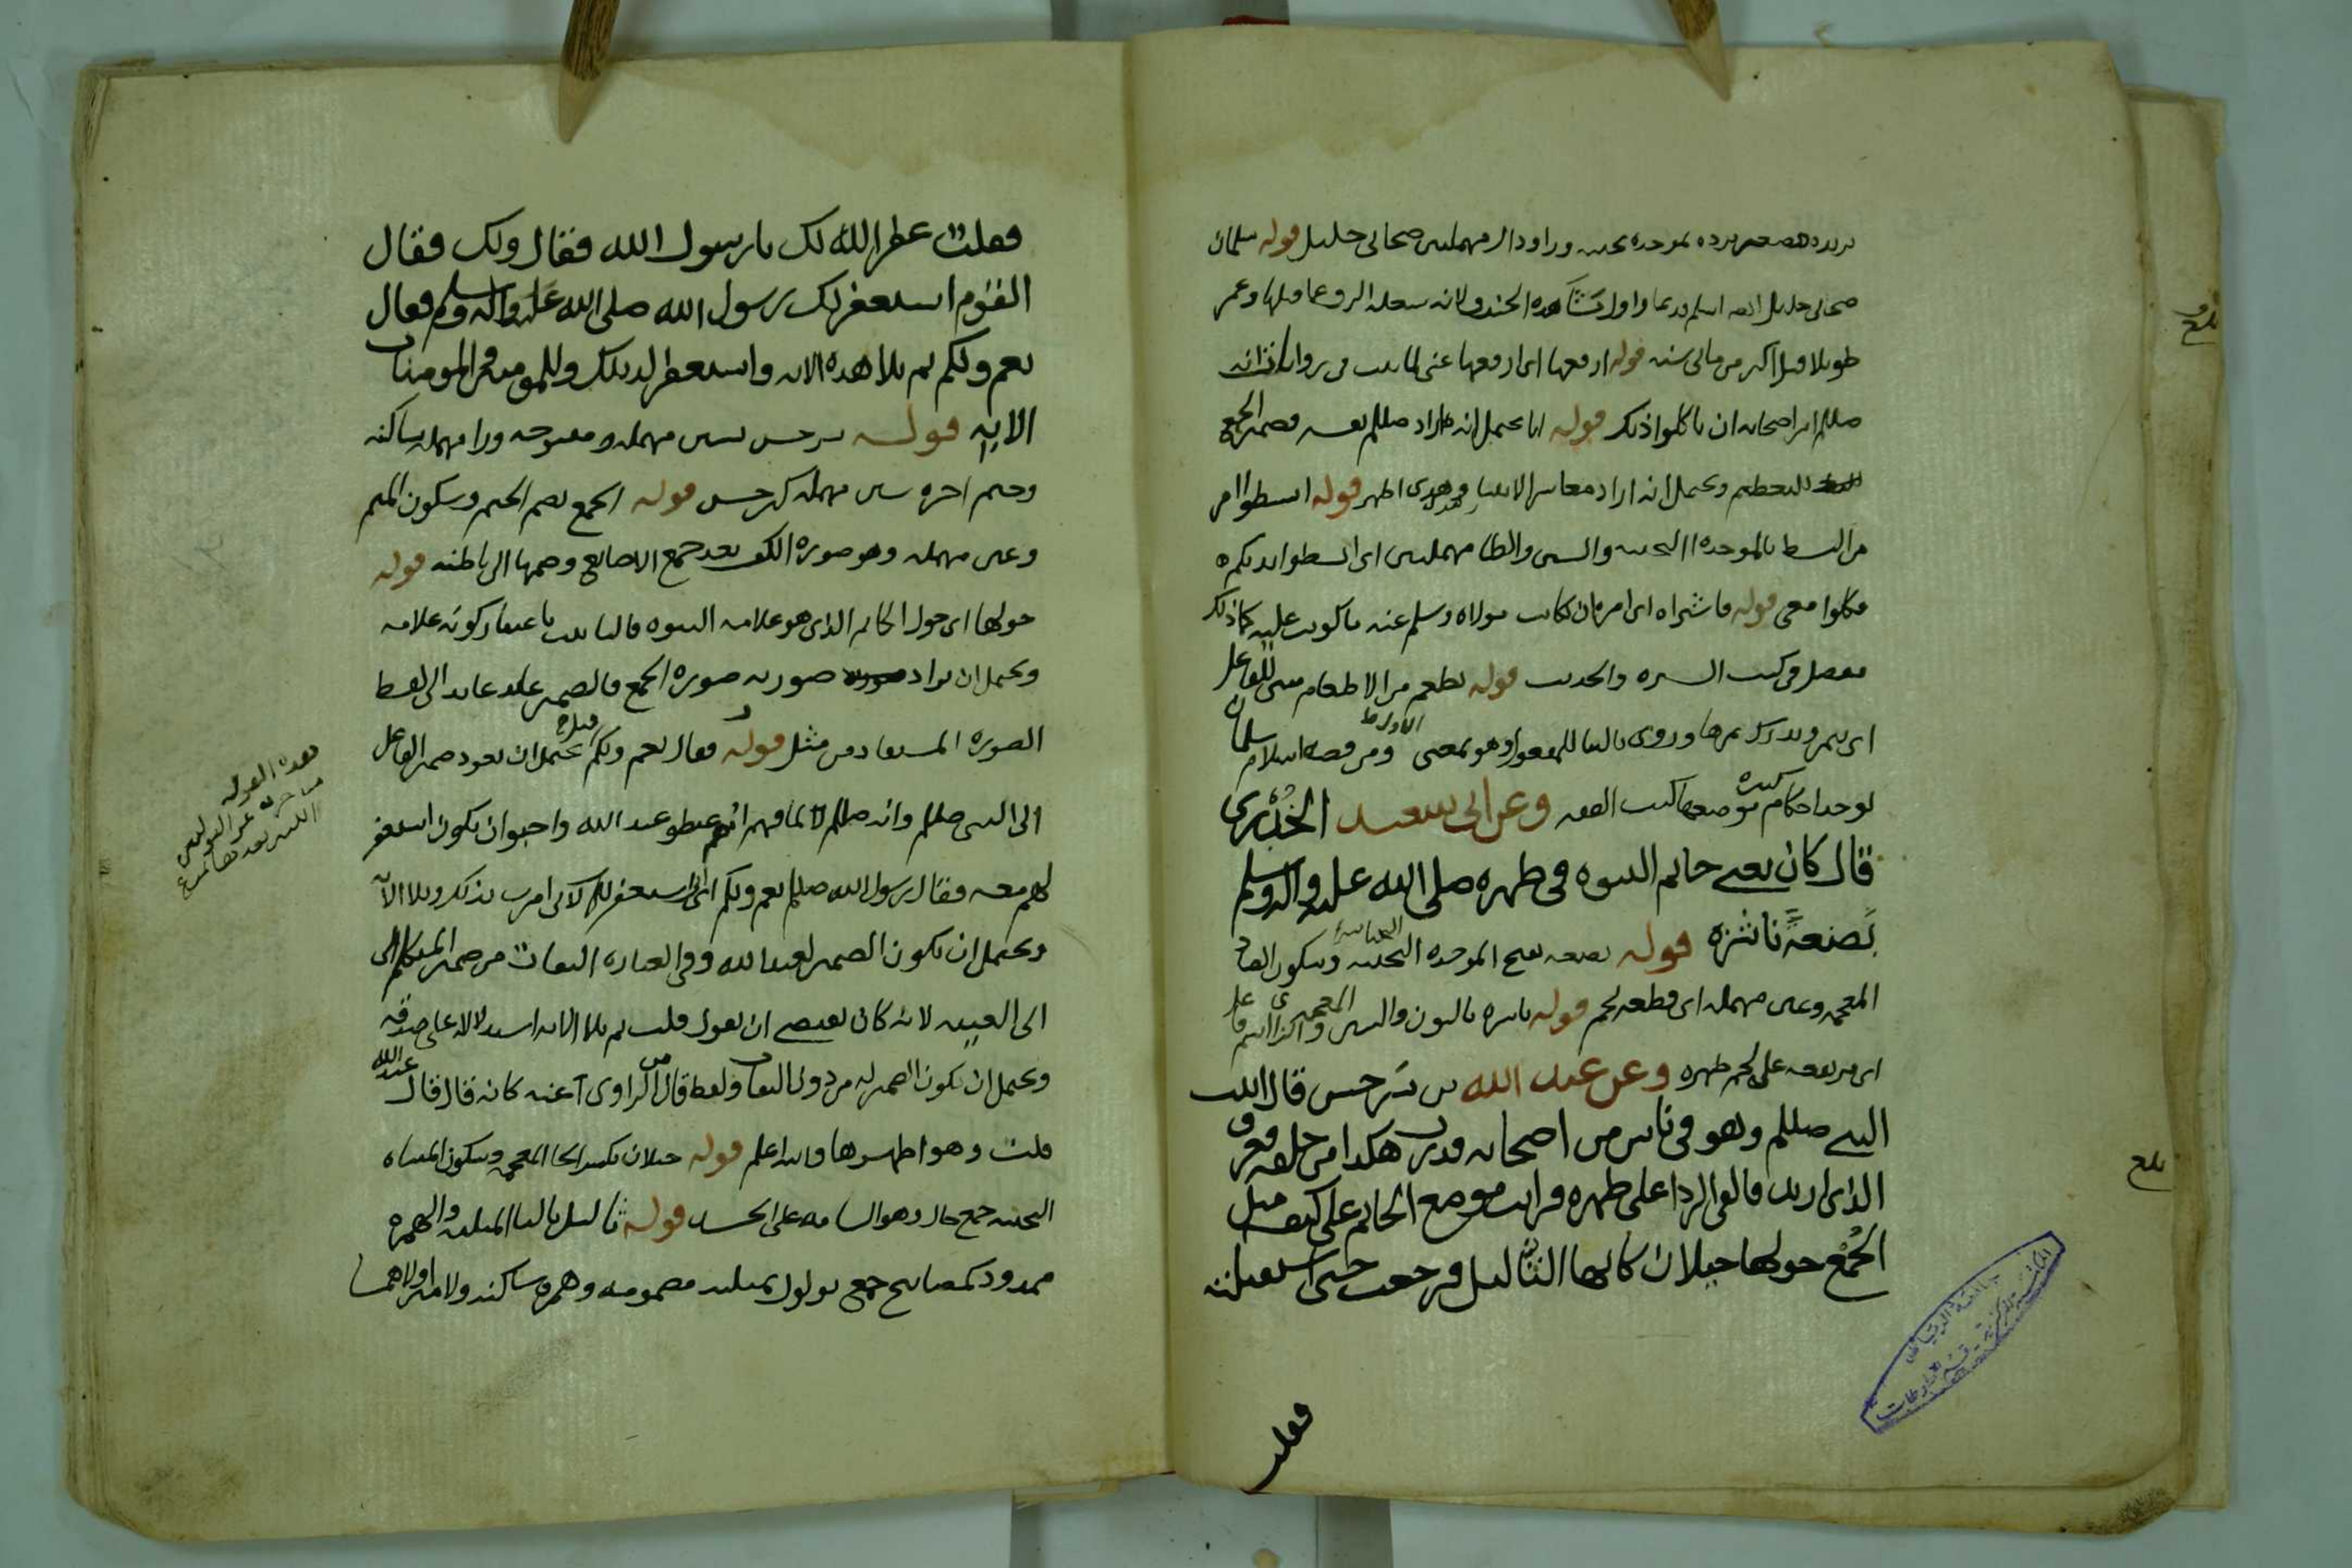 بريده هو بضم برده بموحده تحتيه وراودال مهملتين صحابى جليل قوله سلمان
صحابى جليل اسلم قديما واول مشاهده الخندق لانه وعمر
طويلا قيل اكثر من مائتى سنه قوله ارفعها اى ارفعها عنى فى روايه انه
صللم امر اصحابه ان ياكلوا ذلك قوله انا يحتمل انه اراد صللم نفسه فضمير الجمع
للتعظيم ويحتمل انه اراد معاشر الانبيا وهو اظهر قوله ابسطوا امر
من البسط بالموحده التحتيه والسين والطا مهملتين اى ابسطوا ايديكم
فكلوا معى قوله فاشتراه اى امر بان كاتب مولاه وسلم عنه ما كوتب عليه كما ذلك
مفصل فى كتب السيره والحديث قوله تطعم من الاطعام مبنى للفاعل
اى يثمر ويدرك ثمرها وروى باليا للمفعول وهو بمعنى الاول ومن قصة اسلام سلمان
يوجد احكام كثيره موضعها كتب الفقه وعن ابى سعيد الخُدْرى
قال كان يعنى خاتم النبوه فى ظهره صلى الله عليه واله وسلم
بَضعةً ناشزه قوله بضعه بفتح الموحده التحتانيه وسكون الضاد
المعجمه وعين مهمله اى قطعه لحم قوله ناشزه بالنون والشين والزا المعجمتين على
اى مرتفعه على لحم ظهره وعن عبد الله بن سَرجس قال اتيت
النبى صللم وهو فى ناس من اصحابه فدرت هكذا من خلفه فعرف
الذى اريد فالقى الردا على ظهره فرايت موضع الخاتم على كتفيه مثل
الجُمْع حولها خيلان كانها الثآليل فرجعت حتى استقبلته
فقلت
فقلت غفر الله لك يا رسول الله فقال ولك فقال
القوم استغفر لك رسول الله صلى الله عليه واله وسلم فقال
نعم ولكم ثم تلا هذه الايه واستغفر لذنبك وللمومنين والمومنات
الايه قوله سرجس بسين مهمله مفتوحه ورا مهمله ساكنه
وجيم اخره سين مهمله كنرجس قوله الجمع بضم الجيم وسكون الميم
وعين مهمله وهو صورة الكف بعد جمع الاصابع وضمها الى باطنه قوله
حولها اى حول الخاتم الذى هو علامه النبوه فالتانيث باعتبار كونه علامه
ويحتمل ان يراد صورته صورة الجمع فالضمير عليه عايد الى لفظ
الصوره المستفاد من مثل قوله فقال نعم ولكم يحتمل ان يعود ضمير الفاعل
الى النبى صللم وانه صللم لما فهم انهم غبطو عبد الله واحبوا ان يكون استغفر
لهم معه فقال رسول الله صللم نعم ولكم اى استغفر لكم لانى امرت بذلك وتلا الآ
ويحتمل ان يكون الضمير لعبد الله وفى العباره التفات من ضمير المتكلم الى
الى الغيبه لانه كان يقتضى ان يقول قلت ثم تلا الايه استدلالا على صدقه
ويحتمل ان يكون الضمير له من دون التفات ولفظ قال من الراوى عنه كانه قال قال عبد الله
قلت وهو اظهرها والله اعلم قوله خيلان بكسر الخا المعجمه وسكون المثناه
التحتيه جمع خال وهو الشامه على الجسد قوله ثآليل بالثا المثلثه والهمزه
ممدود كمصابيح جمع ثولول بمثلثه مضمومه وهمزه ساكنه ولامين اولاهما
هذه القوله
متاخره عن القولين
اللتين بعدها تمت
بلغ
بلغ